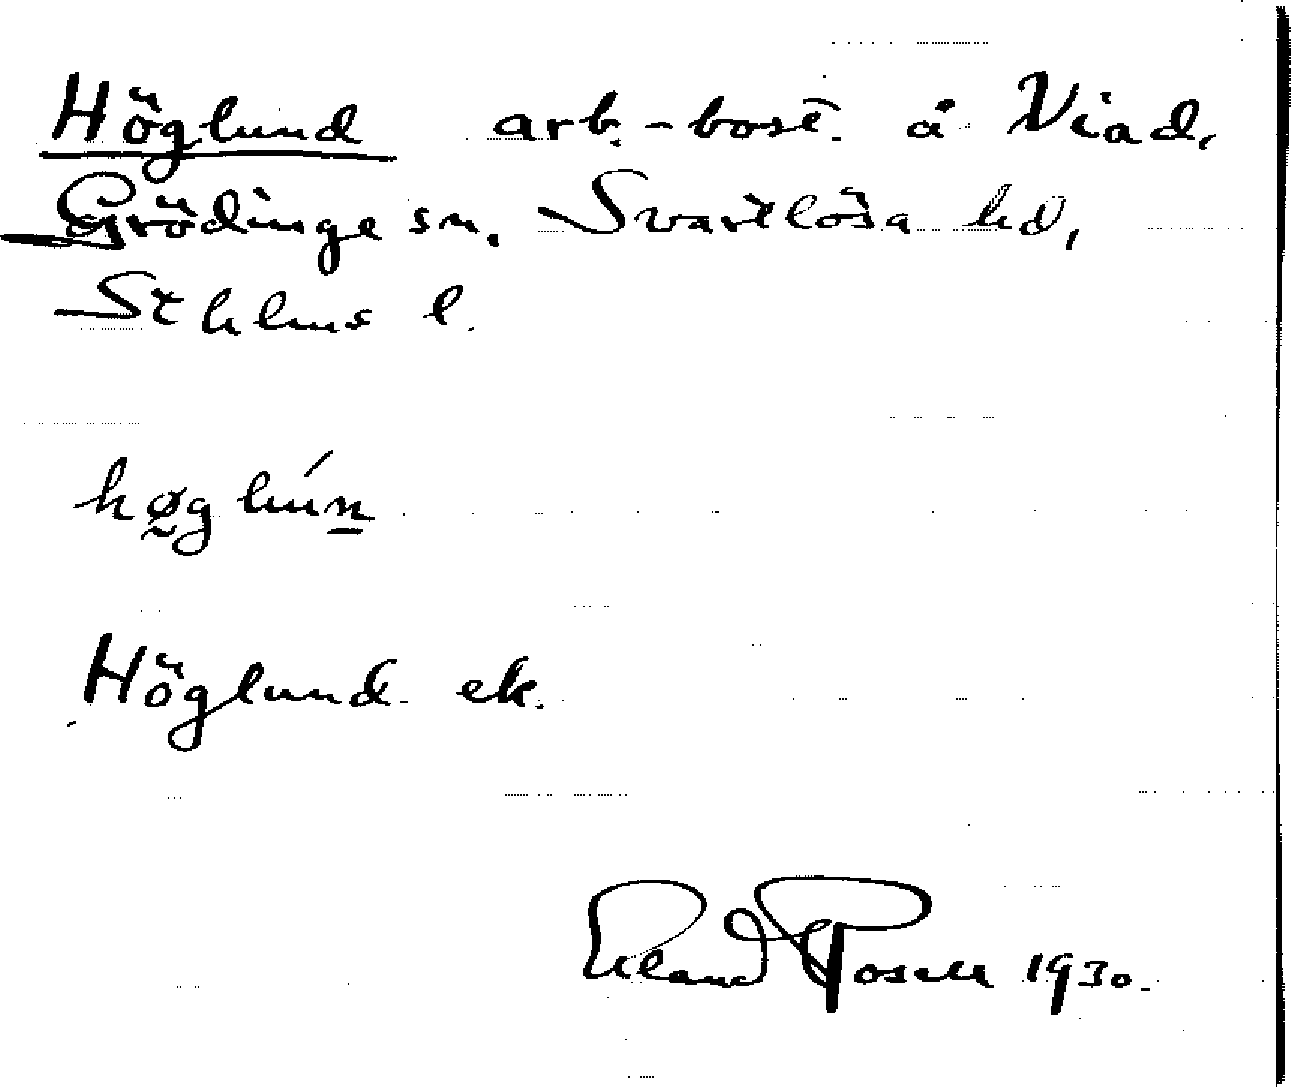 Höglund arb.-bost. å Viad,
Grödinge sn. Svartlösa hd,
Sthlms l.
høglún
Höglund ek.
Erland Rosell 1930.